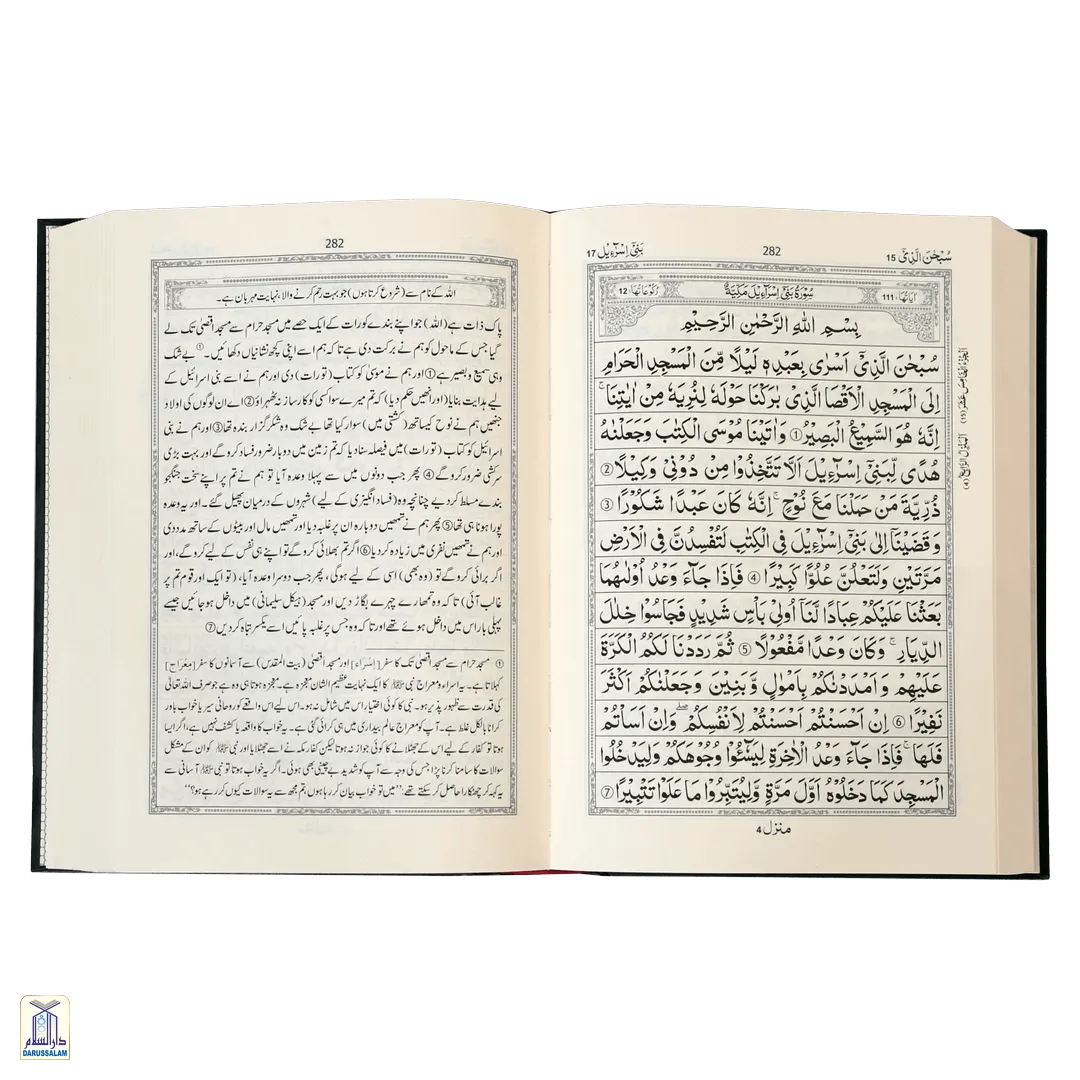 سُبْحٰنَ الَّذِیْۤ 15
282
بَنِیْۤ اِسْرَآءِیْل 17
اٰیَاتُهَا: 111
سُوْرَةُ بَنِیْۤ اِسْرَآءِیْلَ مَكِّیَّةٌ
رُكُوْعَاتُهَا: 12
بِسْمِ اللّٰهِ الرَّحْمٰنِ الرَّحِیْمِ
سُبْحٰنَ الَّذِیْۤ اَسْرٰی بِعَبْدِهٖ لَیْلًا مِّنَ الْمَسْجِدِ الْحَرَامِ
اِلَی الْمَسْجِدِ الْاَقْصَا الَّذِیْ بٰرَكْنَا حَوْلَهٗ لِنُرِیَهٗ مِنْ اٰیٰتِنَا ؕ
اِنَّهٗ هُوَ السَّمِیْعُ الْبَصِیْرُ ① وَاٰتَیْنَا مُوْسَی الْكِتٰبَ وَجَعَلْنٰهُ
هُدًی لِّبَنِیْۤ اِسْرَآءِیْلَ اَلَّا تَتَّخِذُوْا مِنْ دُوْنِیْ وَكِیْلًا ②
ذُرِّیَّةَ مَنْ حَمَلْنَا مَعَ نُوْحٍ ؕ اِنَّهٗ كَانَ عَبْدًا شَكُوْرًا ③
وَقَضَیْنَاۤ اِلٰی بَنِیْۤ اِسْرَآءِیْلَ فِی الْكِتٰبِ لَتُفْسِدُنَّ فِی الْاَرْضِ
مَرَّتَیْنِ وَلَتَعْلُنَّ عُلُوًّا كَبِیْرًا ④ فَاِذَا جَآءَ وَعْدُ اُوْلٰىهُمَا
بَعَثْنَا عَلَیْكُمْ عِبَادًا لَّنَاۤ اُولِیْ بَاْسٍ شَدِیْدٍ فَجَاسُوْا خِلٰلَ
الدِّیَارِ ؕ وَكَانَ وَعْدًا مَّفْعُوْلًا ⑤ ثُمَّ رَدَدْنَا لَكُمُ الْكَرَّةَ
عَلَیْهِمْ وَاَمْدَدْنٰكُمْ بِاَمْوَالٍ وَّبَنِیْنَ وَجَعَلْنٰكُمْ اَكْثَرَ
نَفِیْرًا ⑥ اِنْ اَحْسَنْتُمْ اَحْسَنْتُمْ لِاَنْفُسِكُمْ ۫ وَاِنْ اَسَاْتُمْ
فَلَهَا ؕ فَاِذَا جَآءَ وَعْدُ الْاٰخِرَةِ لِیَسُوْٓءٗا وُجُوْهَكُمْ وَلِیَدْخُلُوا
الْمَسْجِدَ كَمَا دَخَلُوْهُ اَوَّلَ مَرَّةٍ وَّلِیُتَبِّرُوْا مَا عَلَوْا تَتْبِیْرًا ⑦
منزل 4
اَلْجُزْءُ الْخَامِسَ عَشَرَ (15)
اَلْمَنْزِلُ الرَّابِعُ (4)
282
اللہ کے نام سے (شروع کرتا ہوں) جو بہت رحم کرنے والا، نہایت مہربان ہے۔
پاک ذات ہے (اللہ) جو اپنے بندے کو رات کے ایک حصے میں مسجد حرام سے مسجد اقصیٰ تک لے
گیا جس کے ماحول کو ہم نے برکت دی ہے تاکہ ہم اسے اپنی کچھ نشانیاں دکھائیں۔① بے شک
وہی سمیع و بصیر ہے① اور ہم نے موسیٰ کو کتاب (تورات) دی اور ہم نے اسے بنی اسرائیل کے
لیے ہدایت بنایا (اور انھیں حکم دیا) کہ تم میرے سوا کسی کو کارساز نہ ٹھہراؤ② اے ان لوگوں کی اولاد
جنھیں ہم نے نوح کیساتھ (کشتی میں) سوار کیا تھا بے شک وہ شکر گزار بندہ تھا③ اور ہم نے بنی
اسرائیل کو کتاب (تورات) میں فیصلہ سنا دیا کہ تم زمین میں دوبار ضرور فساد کروگے اور بہت بڑی
سرکشی ضرور کروگے④ پھر جب دونوں میں سے پہلا وعدہ آیا تو ہم نے تم پر اپنے سخت جنگجو
بندے مسلط کر دیے چنانچہ وہ (فساد انگیزی کے لیے) شہروں کے درمیان پھیل گئے۔ اور یہ وعدہ
پورا ہونا ہی تھا⑤ پھر ہم نے تمھیں دوبارہ ان پر غلبہ دیا اور تمھیں مال اور بیٹوں کے ساتھ مدد دی
اور ہم نے تمھیں نفری میں زیادہ کر دیا⑥ اگر تم بھلائی کروگے تو اپنے ہی نفس کے لیے کروگے، اور
اگر برائی کروگے تو (وہ بھی) اسی کے لیے ہوگی، پھر جب دوسرا وعدہ آیا، (تو ایک اور قوم تم پر
غالب آئی) تاکہ وہ تمھارے چہرے بگاڑ دیں اور مسجد (ہیکل سلیمانی) میں داخل ہو جائیں جیسے
پہلی بار اس میں داخل ہوئے تھے اور تاکہ وہ جس پر غلبہ پائیں اسے یکسر تباہ کر دیں⑦
① مسجد حرام سے مسجد اقصیٰ تک کا سفر [اِسْرَاء] اور مسجد اقصیٰ (بیت المقدس) سے آسمانوں کا سفر [مِعْرَاج]
کہلاتا ہے۔ یہ اسراء و معراج نبی ﷺ کا ایک نہایت عظیم الشان معجزہ ہے۔ معجزہ ہوتا ہی وہ ہے جو صرف اللہ تعالیٰ
کی قدرت سے ظہور پذیر ہو۔ نبی کا کوئی اختیار اس میں شامل نہ ہو۔ اس لیے اس واقعے کو روحانی سیر یا خواب باور
کرانا بالکل غلط ہے۔ آپ کو معراج عالم بیداری میں ہی کرائی گئی ہے۔ یہ خواب کا واقعہ یا کشف نہیں ہے، اگر ایسا
ہوتا تو کفار کے لیے اس کے جھٹلانے کا کوئی جواز نہ ہوتا لیکن کفار مکہ نے اسے جھٹلایا اور نبی ﷺ کو ان کے مشکل
سوالات کا سامنا کرنا پڑا جس کی وجہ سے آپ کو شدید بے چینی بھی ہوئی۔ اگر یہ خواب ہوتا تو نبی ﷺ آسانی سے
یہ کہہ کر چھٹکارا حاصل کر سکتے تھے: ’’میں تو خواب بیان کر رہا ہوں، تم مجھ سے یہ سوالات کیوں کر رہے ہو؟‘‘
دارالسلام
DARUSSALAM